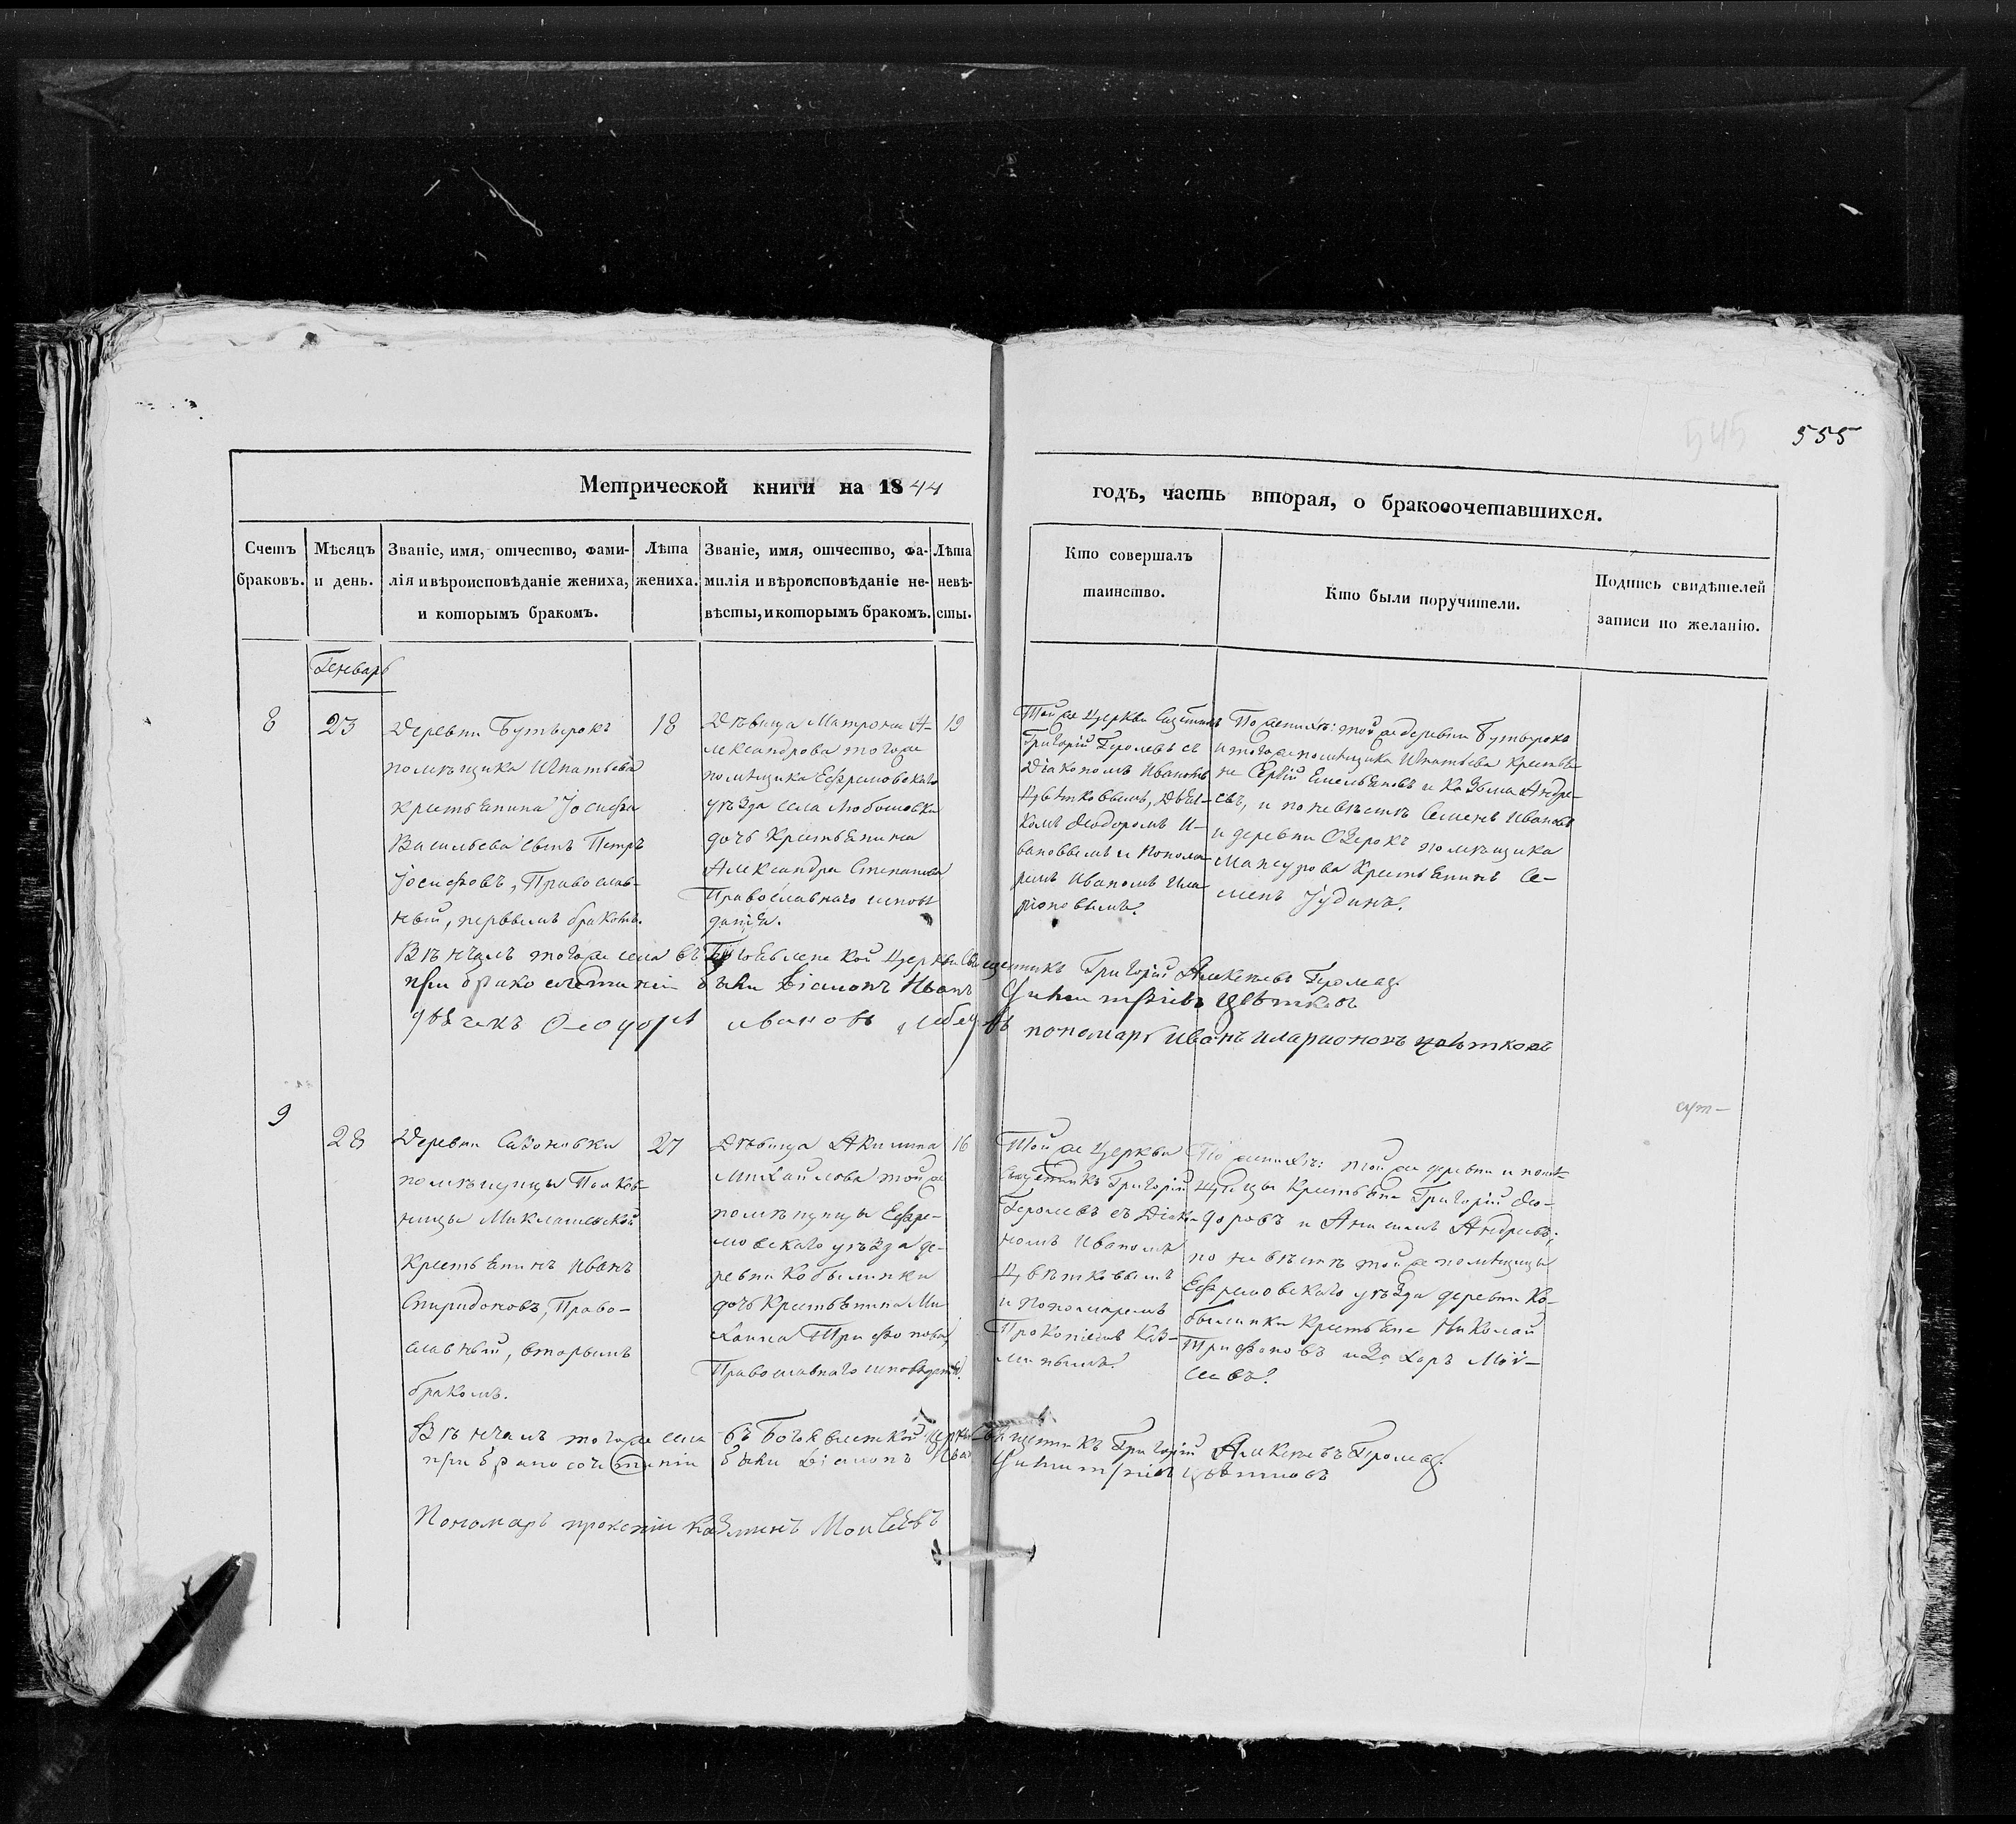 545 555
Метрической книги на 1844
годъ, часть вторая, о бракосочетавшихся.
Счетъ браковъ.
Мѣсяцъ и день.
Званіе, имя, отчество, фами-
лія и вѣроисповѣданіе жениха,
и которымъ бракомъ.
Лѣта
жениха.
Званіе, имя, отчество, фа-
милія и вѣроисповѣданіе не-
вѣсты, и которымъ бракомъ.
Лѣта
невѣ-
сты.
Кто совершалъ
таинство.
Кто были поручители.
Подпись свидѣтелей
записи по желанію.
Генварь
8
23
Деревни Бутырокъ
помѣщика Игнатьева
крестьянина Іосифа
Васильева сынъ Петръ
Іосифовъ, Православ-
ный, первымъ бракомъ.
18
Дѣвица Матрона А-
лександрова тогоже
помѣщика Ефремовскаго
уѣзда села Любимовки
дочь крестьянина
Александра Степанова
Православнаго исповѣ
данія.
19
Тойже Церкви Священникъ
Григорій Геролевъ съ
Діакономъ Иваномъ
Цвѣтковымъ, Дьяч-
комъ Ѳеодоромъ И-
вановымъ и Понома-
ремъ Иваномъ Ила-
ріоновымъ.
По женихѣ: той же деревни Бутырокъ
и тогоже помѣщика Игнатьева крестья-
не Сергій Емельяновъ и Козьма Андре-
евъ, и по невѣстѣ Семенъ Ивановъ
и деревни Озерокъ помѣщика
Мансурова крестьянинъ Се-
менъ Іудинъ.
Вѣнчалъ тогоже села въ Богоявленской церкви Священникъ Григорій Алексѣевъ
при бракосочетаніи были Діаконъ Иванъ Цвѣтковъ
дьячекъ Ѳеодоръ Ивановъ пономарь Иванъ Иларионовъ Цвѣтковъ
9
28
Деревни Сазоновки
помѣщицы Полков-
ницы Миклашевской
крестьянинъ Иванъ
Спиридоновъ, Право-
славный, вторымъ
бракомъ.
27
Дѣвица Акилина
Михайлова тойже
помѣщицы Ефре-
мовскаго уѣзда де-
ревни Кобылинки
дочь крестьянина Ми-
хаила Трифонова,
Православнаго исповѣданія.
16
Тойже Церкви
Священникъ Григорій
Геролевъ съ Діако-
номъ Иваномъ
Цвѣтковымъ
и Пономаремъ
Прокопіемъ Коз-
минымъ.
По женихѣ: той же деревни и помѣ-
щицы крестьяне Григорій Ѳео-
доровъ и Анисимъ Андреевъ;
по невѣстѣ тойже помѣщицы
Ефремовскаго уѣзда деревни Ко-
былинки крестьяне Николай
Трифоновъ и Захаръ Мои-
сеевъ.
Вѣнчалъ тогоже села въ Богоявленской церкви Священникъ Григорій Алексѣевъ
при бракосочетаніи были Діаконъ Иванъ Цвѣтковъ
Пономарь прокопіи Козминъ Моисѣевъ